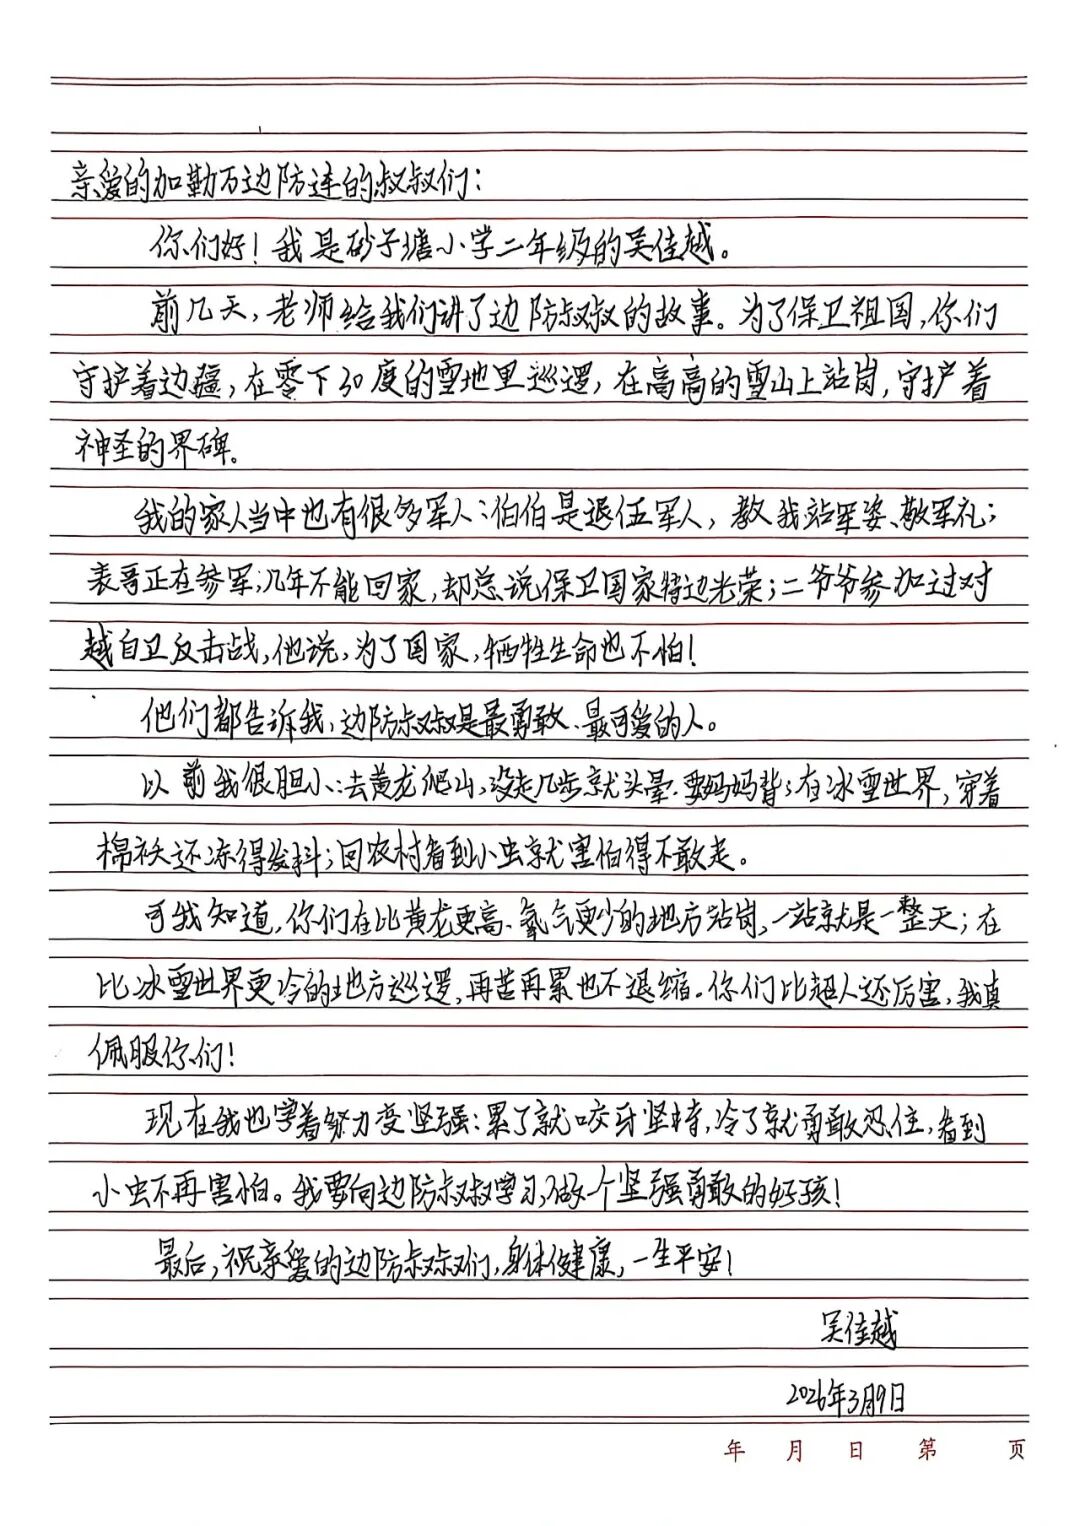 亲爱的加勒万边防连的叔叔们：
你们好！我是砂子塘小学二年级的吴佳越。
前几天，老师给我们讲了边防叔叔的故事。为了保卫祖国，你们
守护着边疆，在零下30度的雪地里巡逻，在高高的雪山上站岗，守护着
神圣的界碑。
我的家人当中也有很多军人：伯伯是退伍军人，教我站军姿、敬军礼；
表哥正在参军，几年不能回家，却总说保卫国家特边光荣；二爷爷参加过对
越自卫反击战，他说，为了国家，牺牲生命也不怕！
他们都告诉我，边防叔叔是最勇敢、最可爱的人。
以前我很胆小：去黄龙爬山，没走几步就头晕，要妈妈背；在冰雪世界，穿着
棉袄还冻得发抖；回农村看到小虫就害怕得不敢走。
可我知道，你们在比黄龙更高、氧气更少的地方站岗，一站就是一整天；在
比冰雪世界更冷的地方巡逻，再苦再累也不退缩。你们比超人还厉害，我真
佩服你们！
现在我也学着努力变坚强：累了就咬牙坚持，冷了就勇敢忍住，看到
小虫不再害怕。我要向边防叔叔学习，做个坚强勇敢的好孩！
最后，祝亲爱的边防叔叔们，身体健康，一生平安！
吴佳越
2026年3月9日
年 月 日 第 页